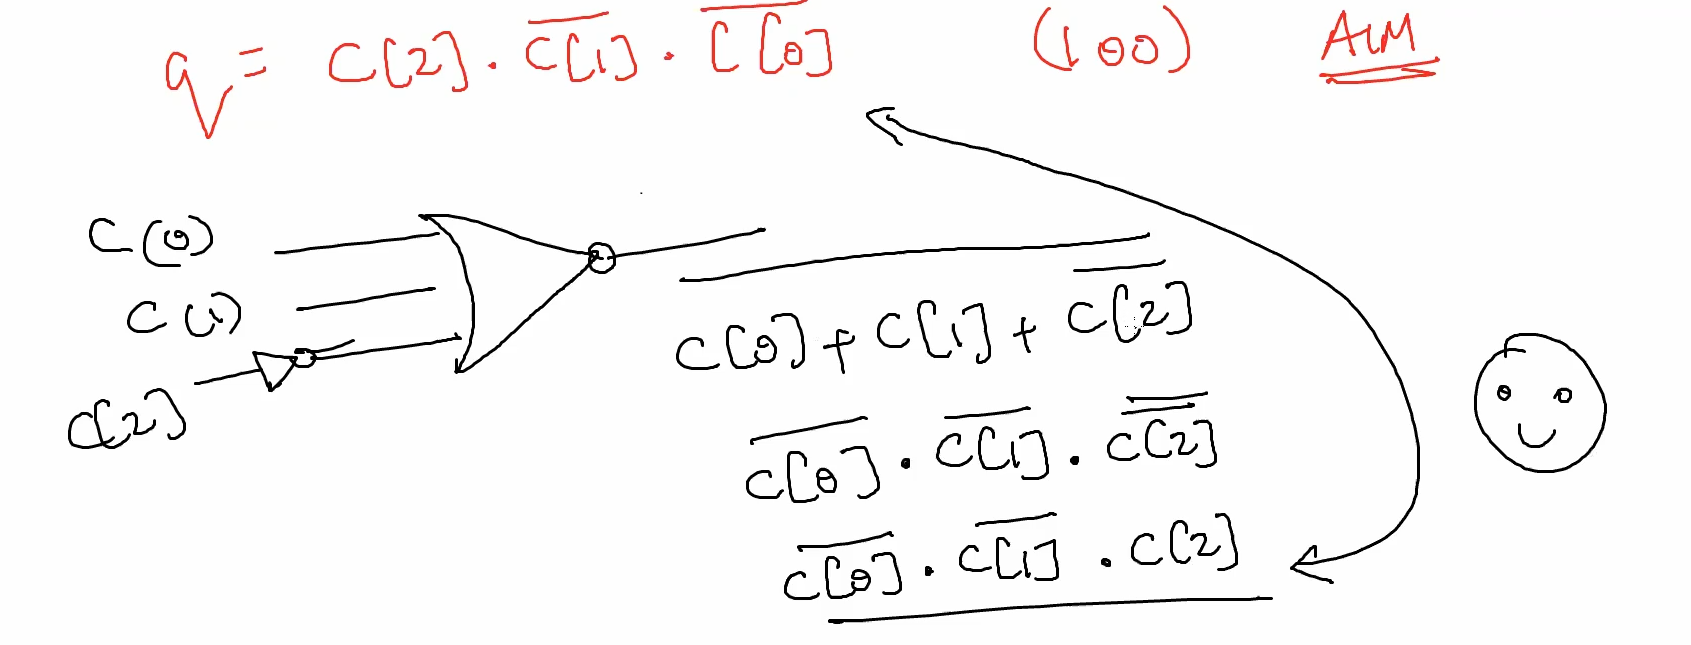 q = C[2] . \overline{C[1]} . \overline{C[0]} (100) AIM
C(0)
C(1)
C[2]
\overline{C[0] + C[1] + \overline{C[2]}}
\overline{C[0]} . \overline{C[1]} . \overline{\overline{C[2]}}
\overline{C[0]} . \overline{C[1]} . C[2]